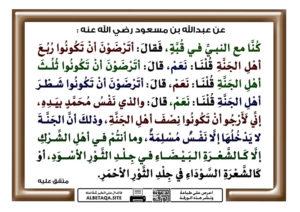 عن عبدالله بن مسعود رضي الله عنه :
كُنَّا مع النبيِّ في قُبَّةٍ، فقالَ: أتَرْضَوْنَ أنْ تَكُونُوا رُبُعَ
أهْلِ الجَنَّةِ قُلْنَا: نَعَمْ، قالَ: أتَرْضَوْنَ أنْ تَكُونُوا ثُلُثَ
أهْلِ الجَنَّةِ قُلْنَا: نَعَمْ، قالَ: أتَرْضَوْنَ أنْ تَكُونُوا شَطْرَ
أهْلِ الجَنَّةِ قُلْنَا: نَعَمْ، قالَ: والذي نَفْسُ مُحَمَّدٍ بيَدِهِ،
إنِّي لَأَرْجُو أنْ تَكُونُوا نِصْفَ أهْلِ الجَنَّةِ، وذلكَ أنَّ الجَنَّةَ
لا يَدْخُلُهَا إلَّا نَفْسٌ مُسْلِمَةٌ، وما أنتُمْ في أهْلِ الشِّرْكِ
إلَّا كَالشَّعْرَةِ البَيْضَاءِ في جِلْدِ الثَّوْرِ الأسْوَدِ، أوْ
كَالشَّعْرَةِ السَّوْدَاءِ في جِلْدِ الثَّوْرِ الأحْمَرِ.
متفق عليه
احرص على طباعة
ونشر هذه الورقة
ALBETAQA.SITE